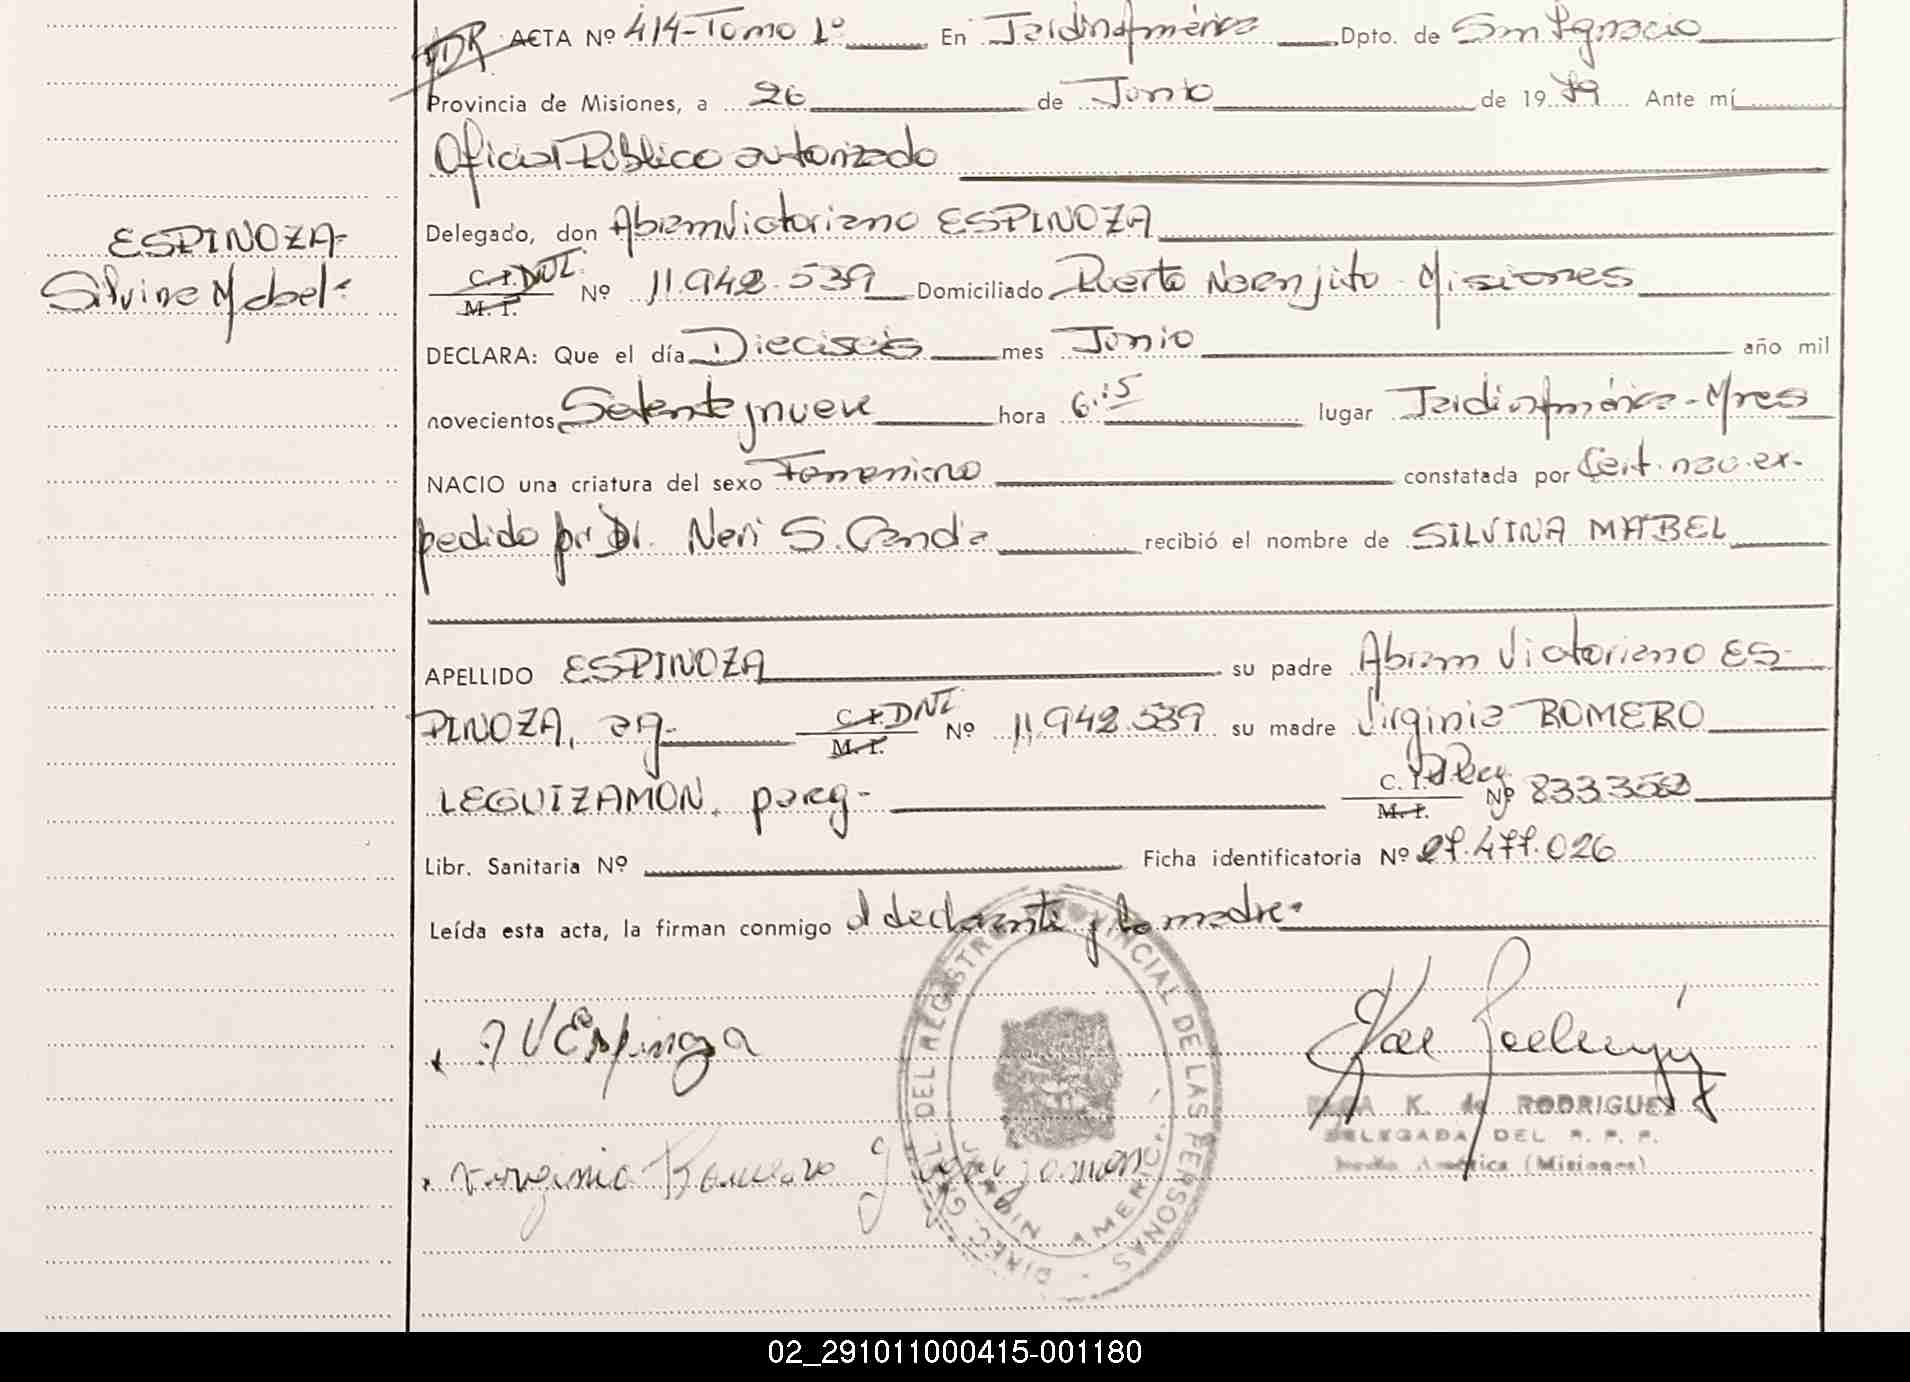 ACTA Nº 414-Tomo 1º En Jardin América Dpto. de San Ignacio
Provincia de Misiones, a 26 de Junio de 1979 Ante mí
Oficial Público autorizado
Delegado, don Abram Victoriano ESPINOZA
ESPINOZA-
C.I. DNI M. I. Nº 11.942.539 Domiciliado Puerto Naranjito - Misiones
Silvina Mabel
DECLARA: Que el día Dieciseis mes Junio año mil
novecientos Setenta y nueve hora 6:15 lugar Jardin América - Mnes
NACIO una criatura del sexo Femenino constatada por Cert. nac. ex-
pedido por Dr. Neri S. Candia recibió el nombre de SILVINA MABEL
APELLIDO ESPINOZA su padre Abram Victoriano ES-
PINOZA, arg- C.I. DNI M. I. Nº 11.942.539 su madre Virginia ROMERO
LEGUIZAMON, parag- C.I. M. I. Nº 833.353
Libr. Sanitaria Nº Ficha identificatoria Nº 27.477.026
Leída esta acta, la firman conmigo el declarante y la madre-
AVEspinoza
K. de RODRIGUEZ
DELEGADA DEL R. P. P.
Jardín América (Misiones)
Virginia Romero Leguizamon
DIREC. GRAL. DEL REGISTRO PROVINCIAL DE LAS PERSONAS
JARDIN AMERICA
02_291011000415-001180